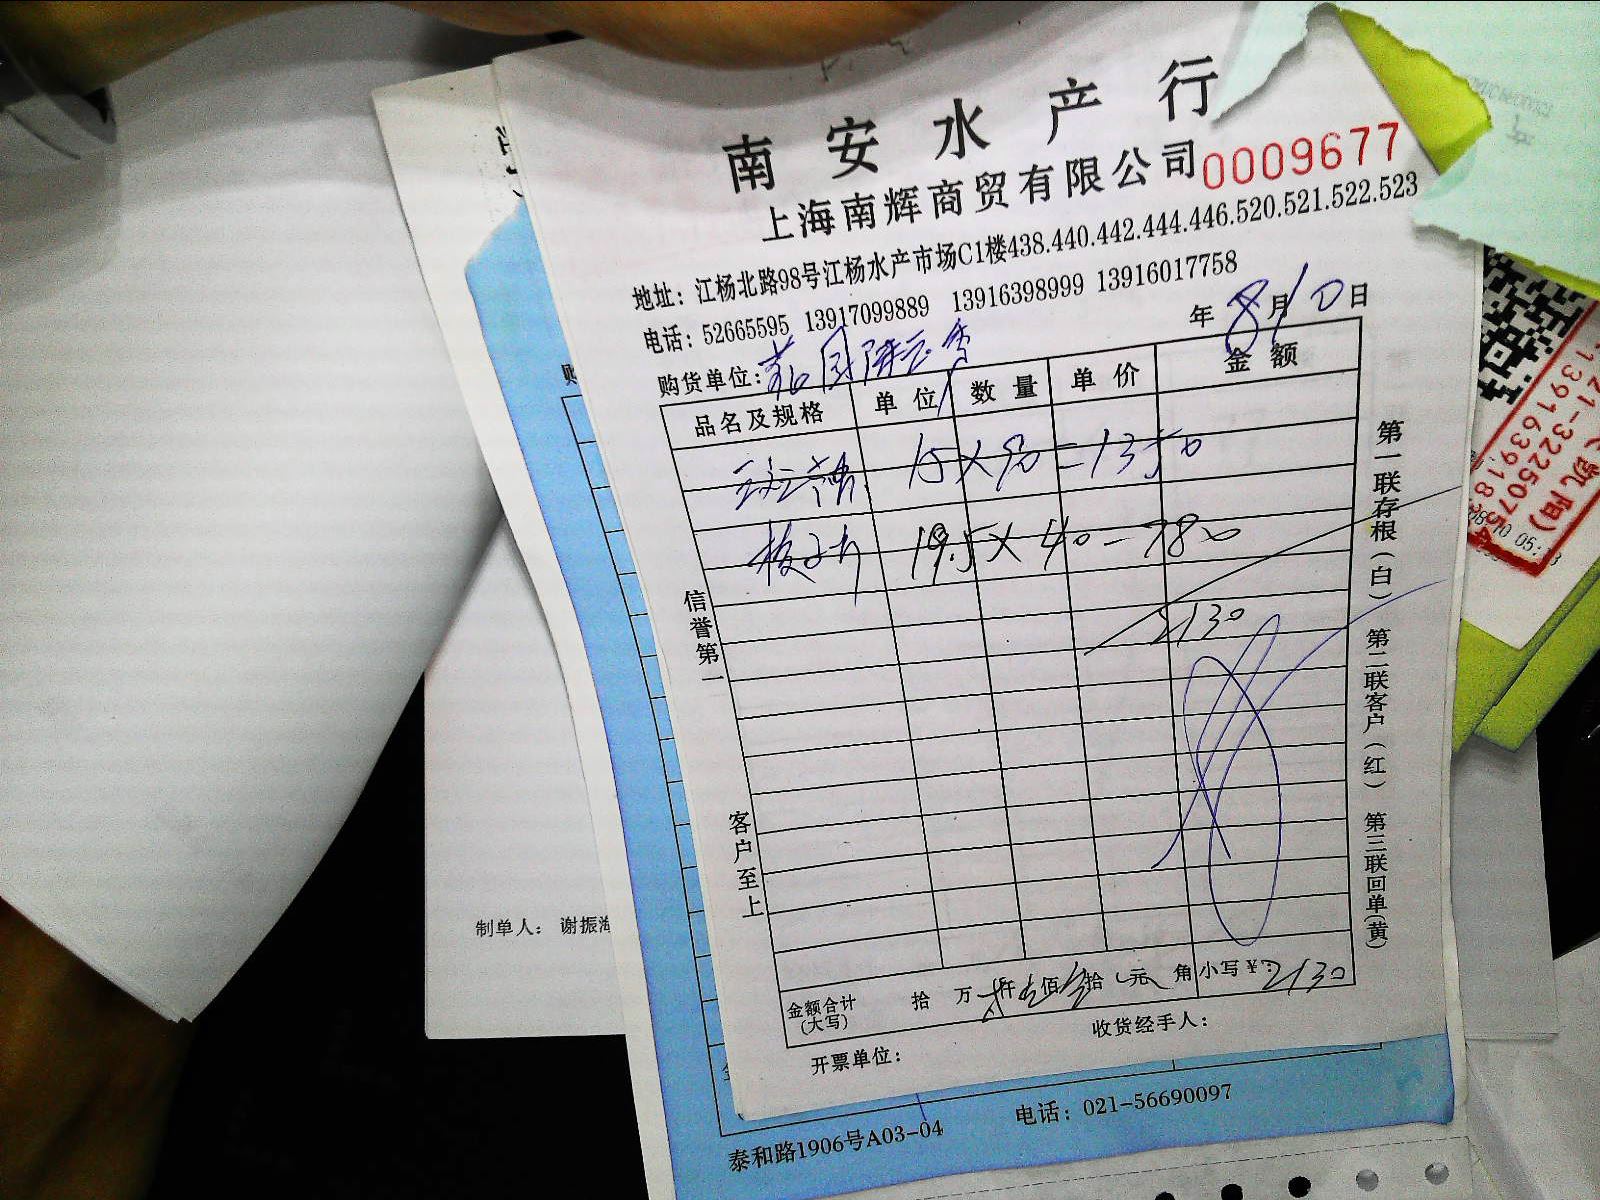 南安水产行
上海南辉商贸有限公司 0009677
地址：江杨北路98号江杨水产市场C1楼438.440.442.444.446.520.521.522.523
电话：52665595 13917099889 13916398999 13916017758
年 8月10日
购货单位：
品名及规格 单位 数量 单价 金额
15×90=1350
19.5×40=780
2130
金额合计（大写） 拾 万 仟 佰 拾 元 角 小写¥：2130
开票单位： 收货经手人：
信誉第一
客户至上
第一联存根（白） 第二联客户（红） 第三联回单（黄）
制单人： 谢振
泰和路1906号A03-04 电话：021-56690097
购
05: